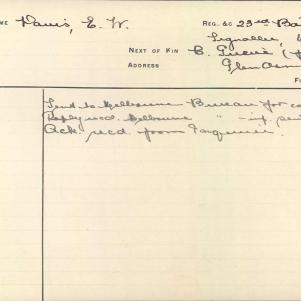 ME Davis, E. W. REG. &C 23rd Ba
Signaller,
NEXT OF KIN
ADDRESS Glen Osm
F
Send to Melbourne Bureau for co
Reply recd. Melbourne " - inf.
Ack. recd from Enquirer.